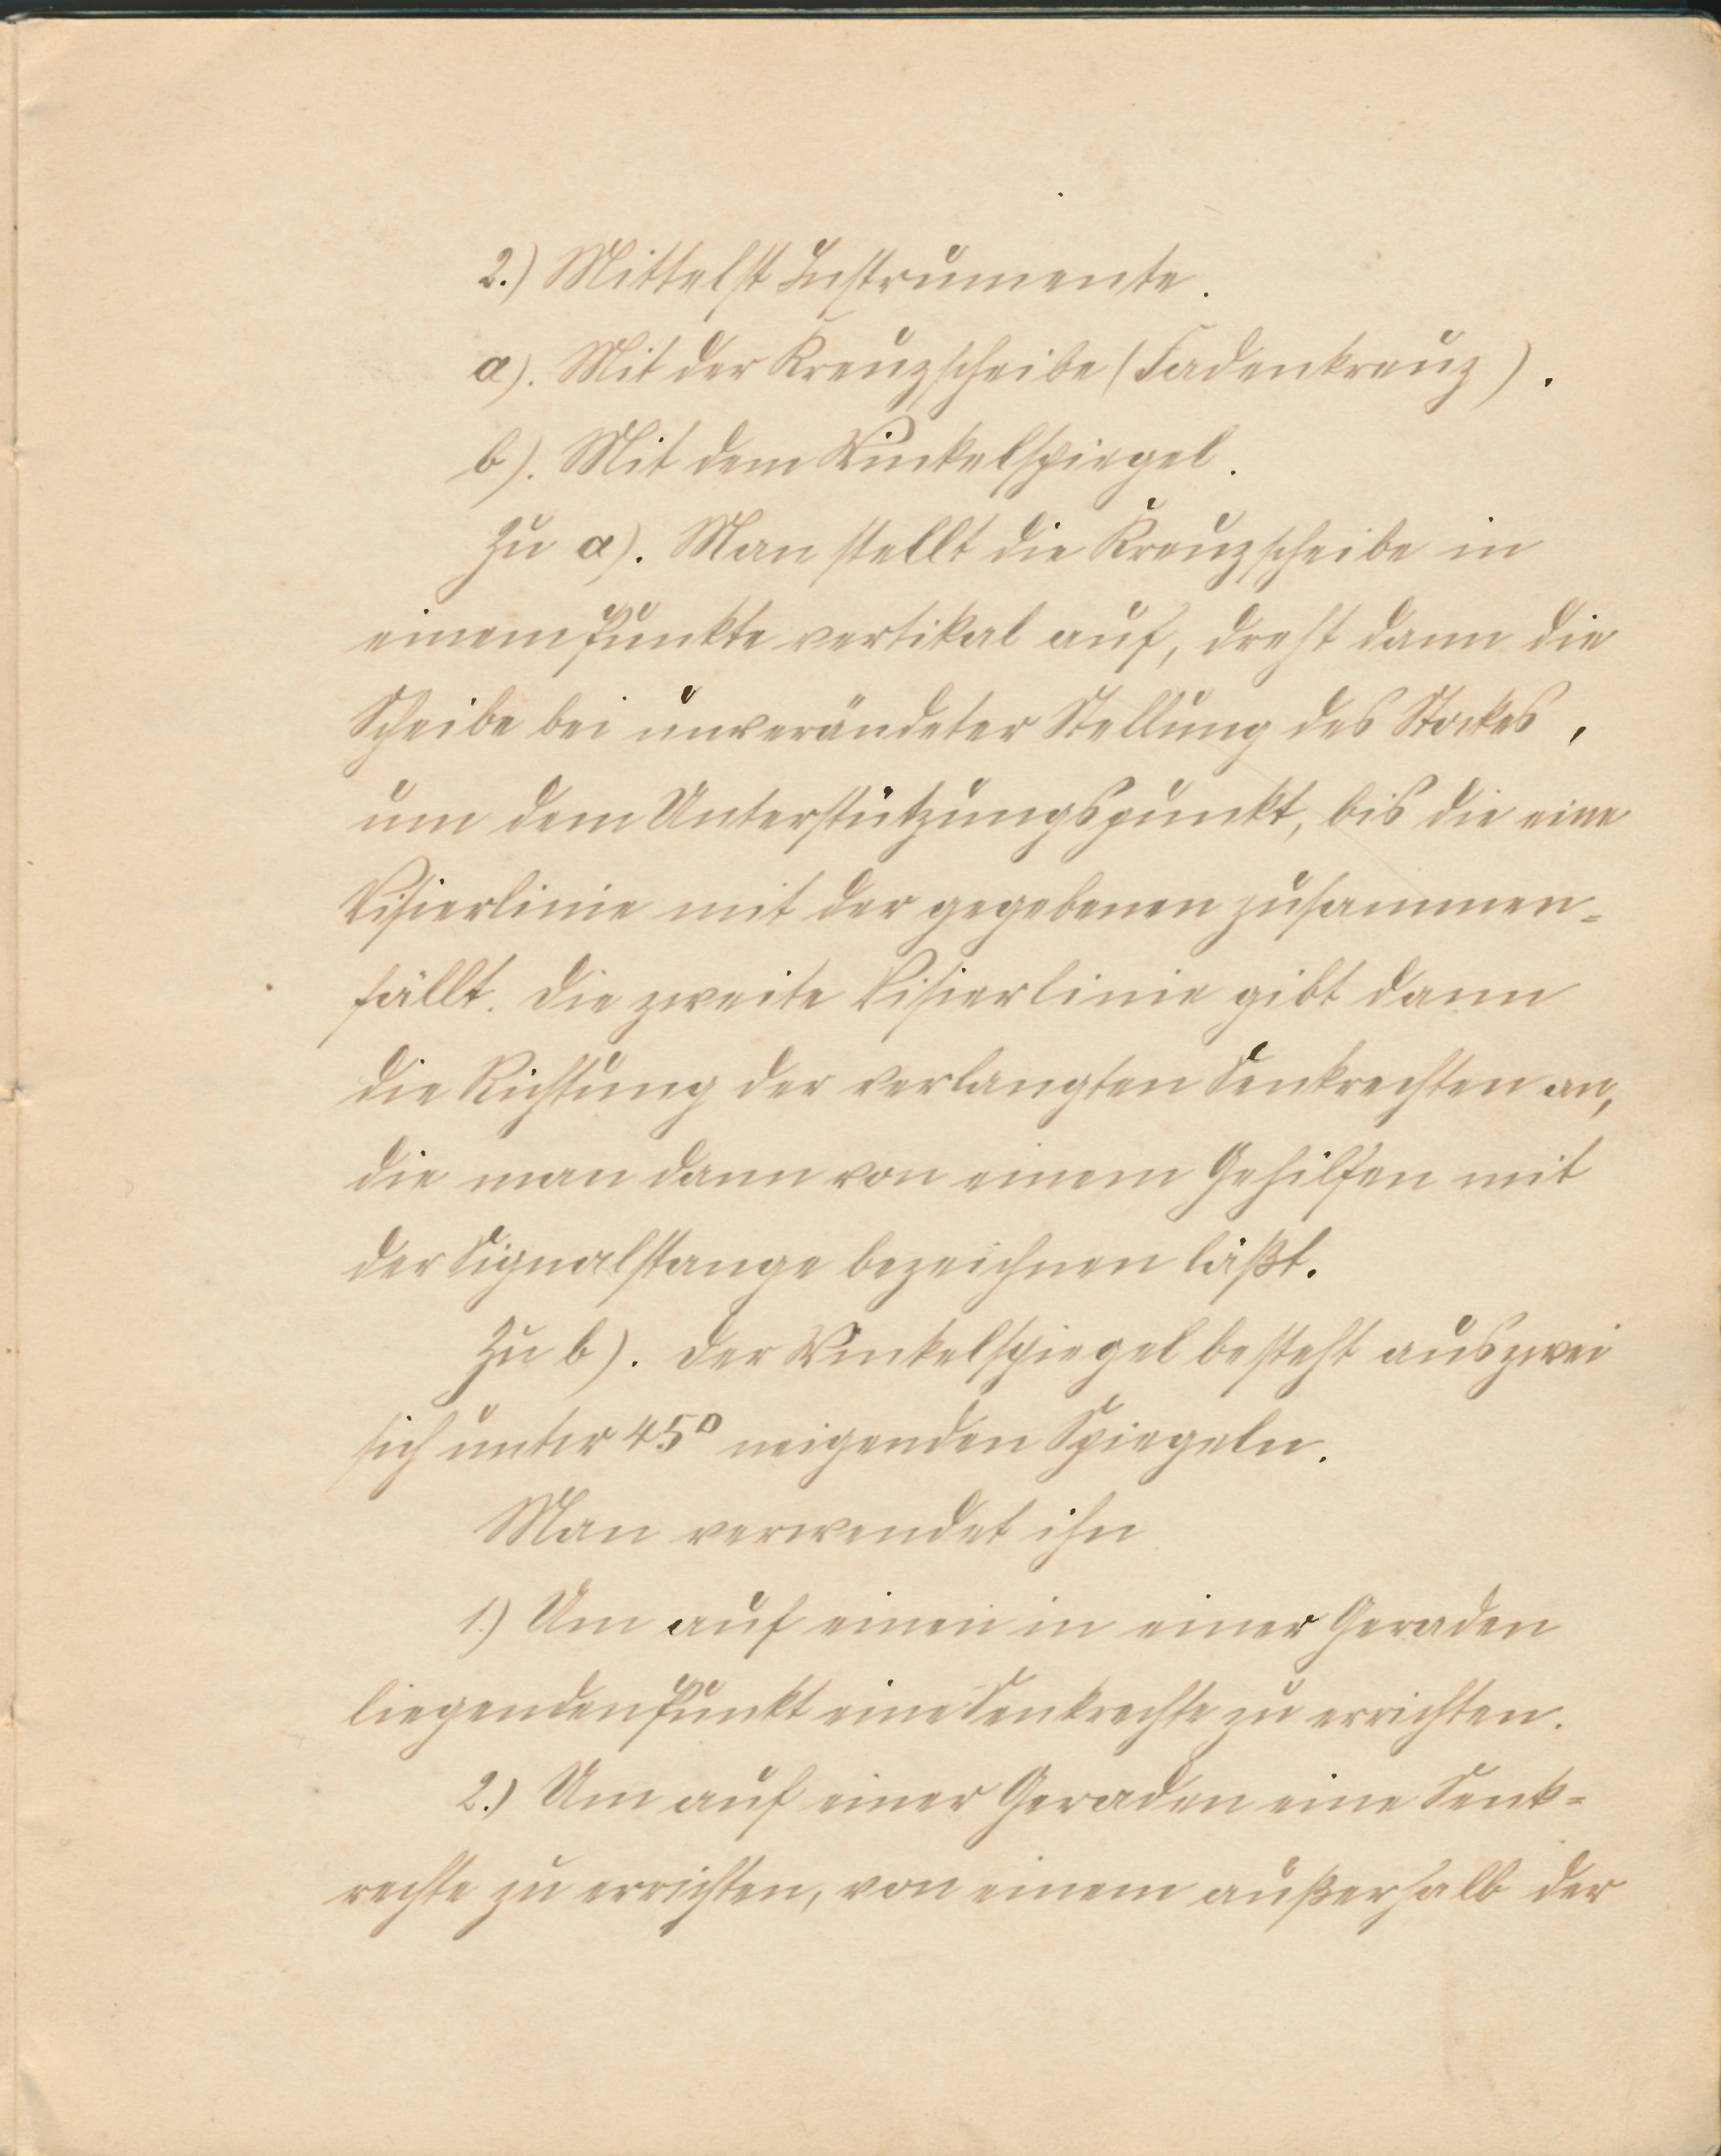 2.) Mittelst Instrumente.
a). Mit der Kreuzscheibe (Fadenkreuz).
b). Mit dem Winkelspiegel.
Zu a). Man stellt die Kreuzscheibe in
einem Punkte vertikal auf, dreht dann die
Scheibe bei unverändeter Stellung des Stockes,
um dem Unterstützungspunkt, bis die eine
Visierlinie mit der gegebenen zusammen-
fällt. Die zweite Visierlinie gibt dann
die Richtung der verlangten Senkrechten an,
die man dann von einem Gehilfen mit
der Signalstange bezeichnen läßt.
Zu b). Der Winkelspiegel besteht aus zwei
sich unter 45° neigenden Spiegeln.
Man verwendet ihn
1.) Um auf einen in einer Geraden
liegenden Punkt eine Senkrechte zu errichten.
2.) Um auf einer Geraden eine Senk-
rechte zu errichten, von einem außerhalb der